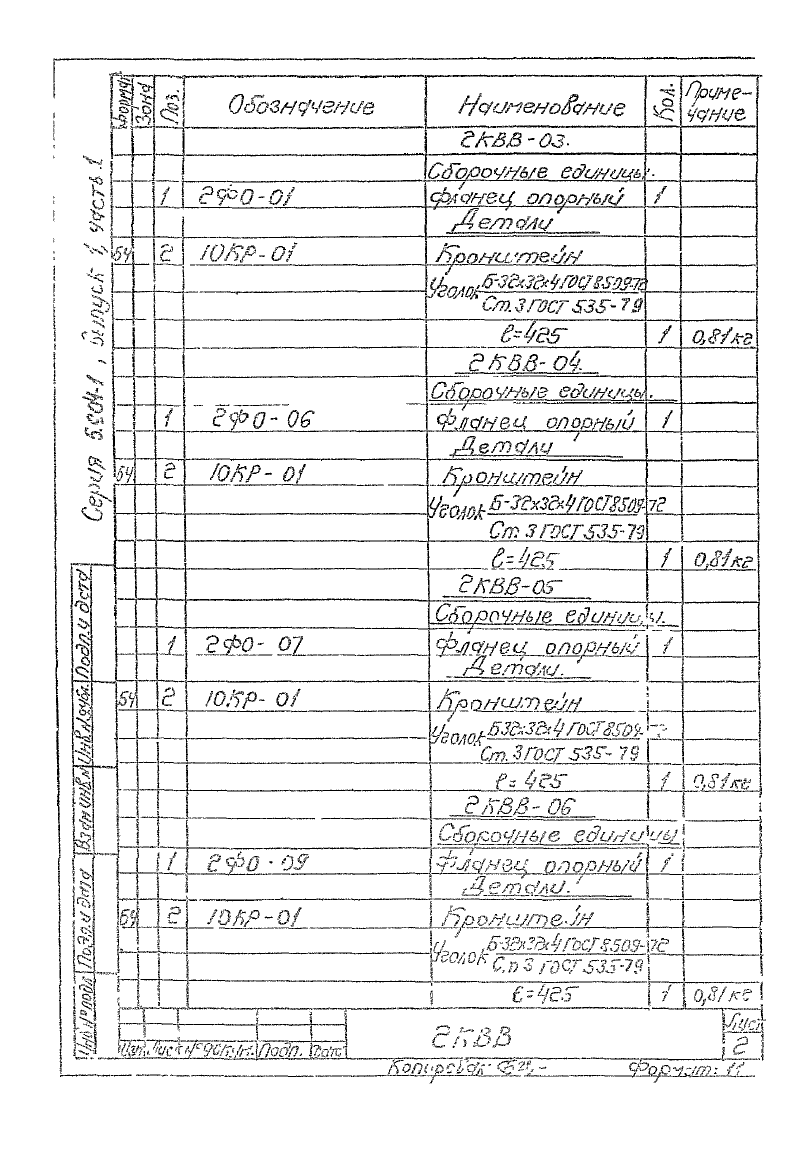 Серия 5.904-1, выпуск 1, часть 1
Формат Зона Поз. Обозначение Наименование Кол. Приме-
чание
2КВВ-03.
Сборочные единицы.
1 2ФО-01 Фланец опорный 1
Детали
БЧ 2 10КР-01 Кронштейн
Уголок Б-32х32х4 ГОСТ 8509-72
Ст. 3 ГОСТ 535-79
ℓ=425 1 0,81кг
2КВВ-04.
Сборочные единицы.
1 2ФО-06 Фланец опорный 1
Детали
БЧ 2 10КР-01 Кронштейн
Уголок Б-32х32х4 ГОСТ 8509-72
Ст. 3 ГОСТ 535-79
ℓ=425 1 0,81кг
2КВВ-05
Сборочные единицы.
1 2ФО-07 Фланец опорный 1
Детали.
БЧ 2 10КР-01 Кронштейн
Уголок Б32х32х4 ГОСТ 8509-72
Ст. 3 ГОСТ 535-79
ℓ=425 1 0,81кг
2КВВ-06
Сборочные единицы
1 2ФО-09 Фланец опорный 1
Детали.
БЧ 2 10КР-01 Кронштейн
Уголок Б-32х32х4 ГОСТ 8509-72
Ст 3 ГОСТ 535-79
ℓ=425 1 0,81кг
Инв № подл. Подп. и дата Взам инв. № Инв. № дубл. Подп. и дата
Изм. Лист № докум. Подп. Дата
2КВВ
Лист
2
Копировал: Формат: 11